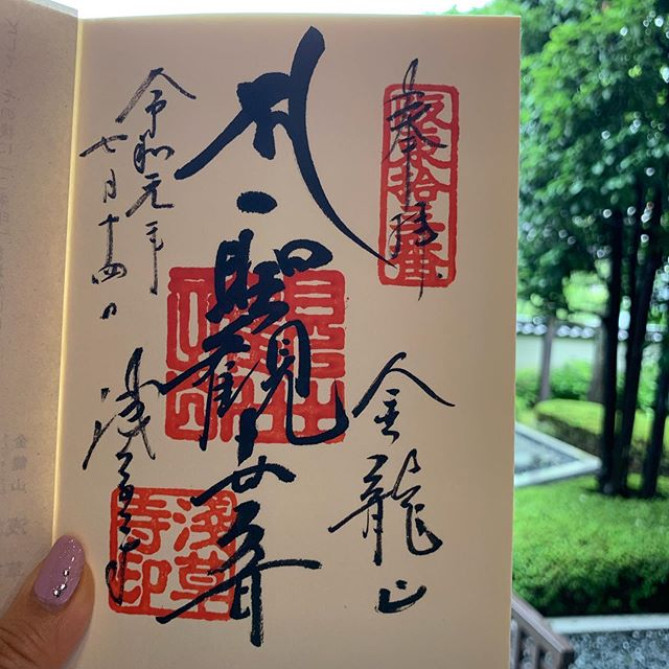 奉拝
坂東拾三番
金龍山
聖観世音
令和元年
七月十四日
浅草寺
淺草寺印